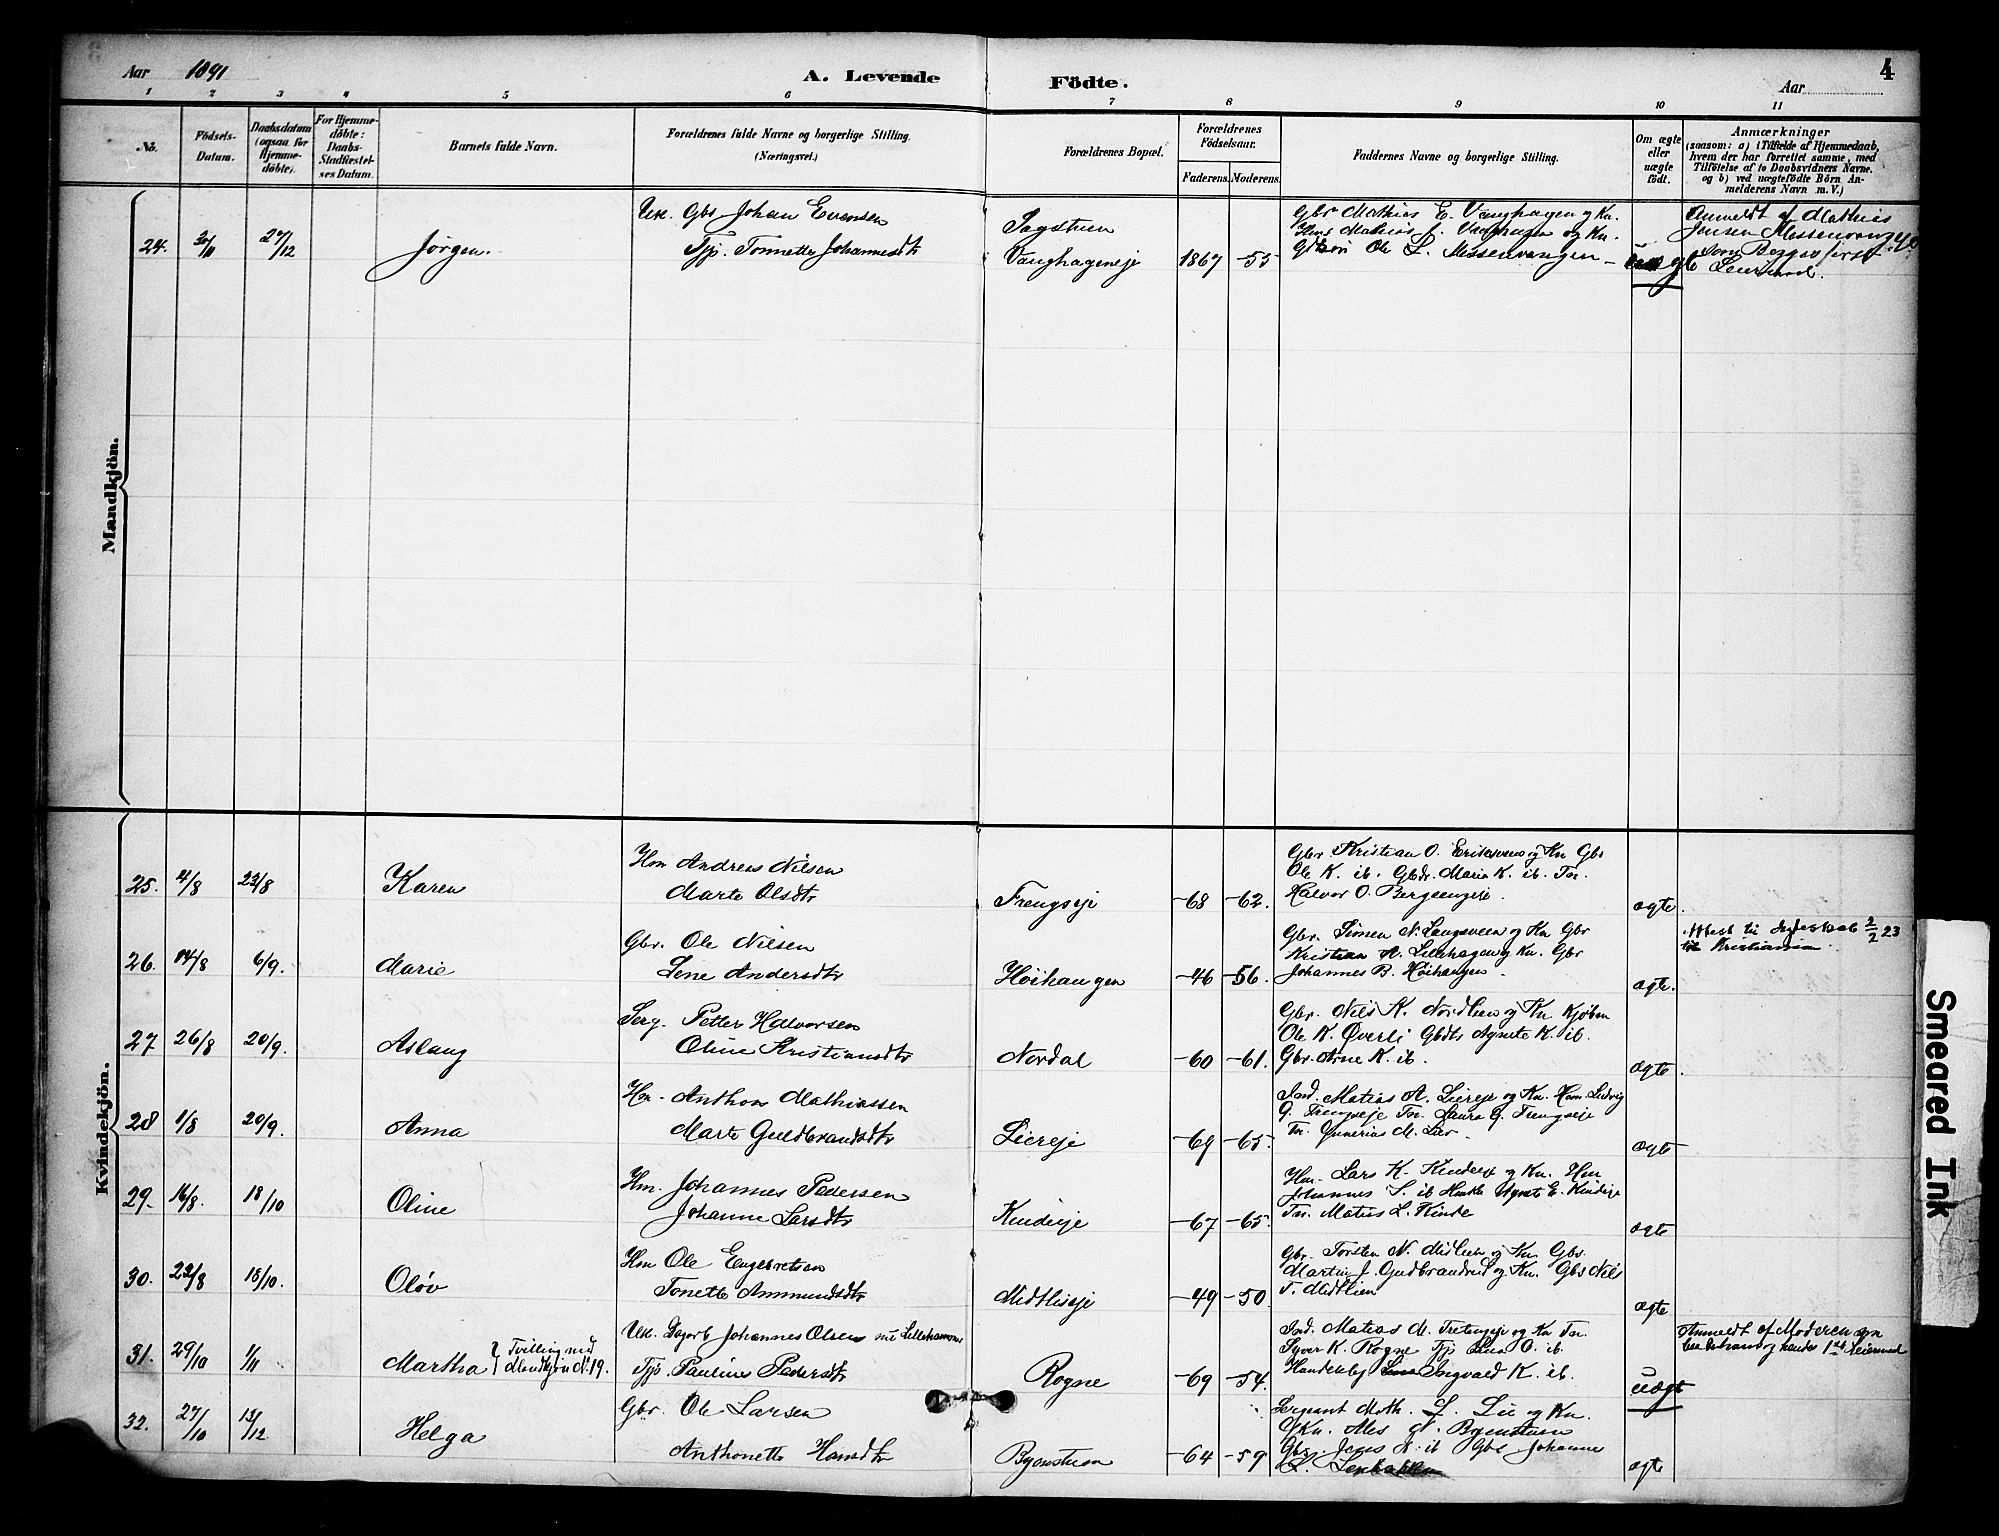 Aar 1891
A. Levende Födte.
Aar
4
1 2 3 4 5 6 7 8 9 10 11
No.
Födsels-Datum.
Daabsdatum (ogsaa for Hjemme-döbte).
For Hjemme-döbte: Daabs-Stadfæstel-ses Datum.
Barnets fulde Navn.
Forældrenes fulde Navne og borgerlige Stilling. (Næringsvei.)
Forældrenes Bopæl.
Forældrenes Födselsaar.
Faderens. Moderens.
Faddernes Navne og borgerlige Stilling.
Om ægte eller uægte födt.
Anmærkninger
(saasom: a) i Tilfælde af Hjemmedaab,
hvem der har forrettet samme, med
Tilföielse af to Daabsvidners Navne.
og b) ved uægtefödte Börn An-
melderens Navn m. V.)
Mandkjön.
24. 27/12 Jørgen.
Uk. Gbs Johan Evensen
Tjp. Tonnette Johannesdtr
Sagstuen
Vanghageneje 1867 -55
Gbr Mathias E. Vanghagen og Kn.
Ole L. Messenvangen
Anmeldt af Mathias
Jensen Messenvangeje
som Begges første
Leiermaal.
Kvindekjön.
25. 4/8 23/8 Karen
Hm Andreas Nilsen
Marte Olsdtr
Frengseje -68 -62.
Gbr Kristian O. Eriksveen og Kn Gbs
Ole K. ib. Gbdr. Maria K. ib. Tn.
Halvor O. Bergeengeje.
ægte.
26. 14/8 6/9. Marie
Gbr. Ole Nilsen
Lene Andersdtr
Høihaugen -46 -56.
Gbr. Simen N. Langsveen og Kn Gbr
Kristian A. Lillehagen og Kn. Gbr
Johannes B. Høihaugen.
ægte.
Attest til 2/2 23
til Kristiania.
27 26/8 20/9. Aslaug
Serg. Petter Halvorsen
Oline Kristiansdtr
Nordal -60 -61.
Gbr. Nils K. Nordlien og Kn Kjøbm
Ole K. Øverli Gbdts Agnete K. ib.
Gbr. Arne K. ib.
ægte.
28 1/8 20/9. Anna
Hm. Anthon Mathiassen
Marte Guldbrandsdtr
Liereje -69 -65.
Ind. Matias A. Liereje og Kn. Hm. Ludvig
G. Frengseje Tn. Laura G. Frengseje
Tn. M. Lier.
ægte
29. 16/8. 18/10 Oline
Hm. Johannes Pedersen
Johanne Larsdtr
Kindeje -67 -65.
Hm. Lars K. Kindeje og Kn. Hm
Johannes S. ib Agnete E. Kindeje
Tn. Matias L. Kinde
ægte
30. 23/8 18/10. Oløv
Hm Ole Engebretsen
Tonette Ammundsdtr
Midtlieeje -49 -50
Gbr. Torsten N. Midtlien og Kn Gbs.
Martin J. Gudbrandrud og Kn. Gbs Nils
T. Midtlien
ægte
31. 29/10 1/11 Martha { Tvilling med Mandkjøn No 19.
Uk. Dagarb Johannes Olsen nu Lillehammer
Tjp. Pauline Pedersdtr
Rogne -69 -54.
Ind. Matias M. Tretengeje og Kn Tn.
Syver K. Rogne Tjp Lina O. ib.
Handelsbej Ingvald K. ib.
uægte
Anmeldt af Moderen egen
bedstemor og hendes 1ste leiermaal
32. 27/10 13/12 Helga
Gbr. Ole Larsen
Anthonette Hansdtr
Byenstuen -64 -59
Sergeant Math. L. Lie og Kn.
Gbs. Jens N. ib Gbs Johannes
ægte
Smeared Ink